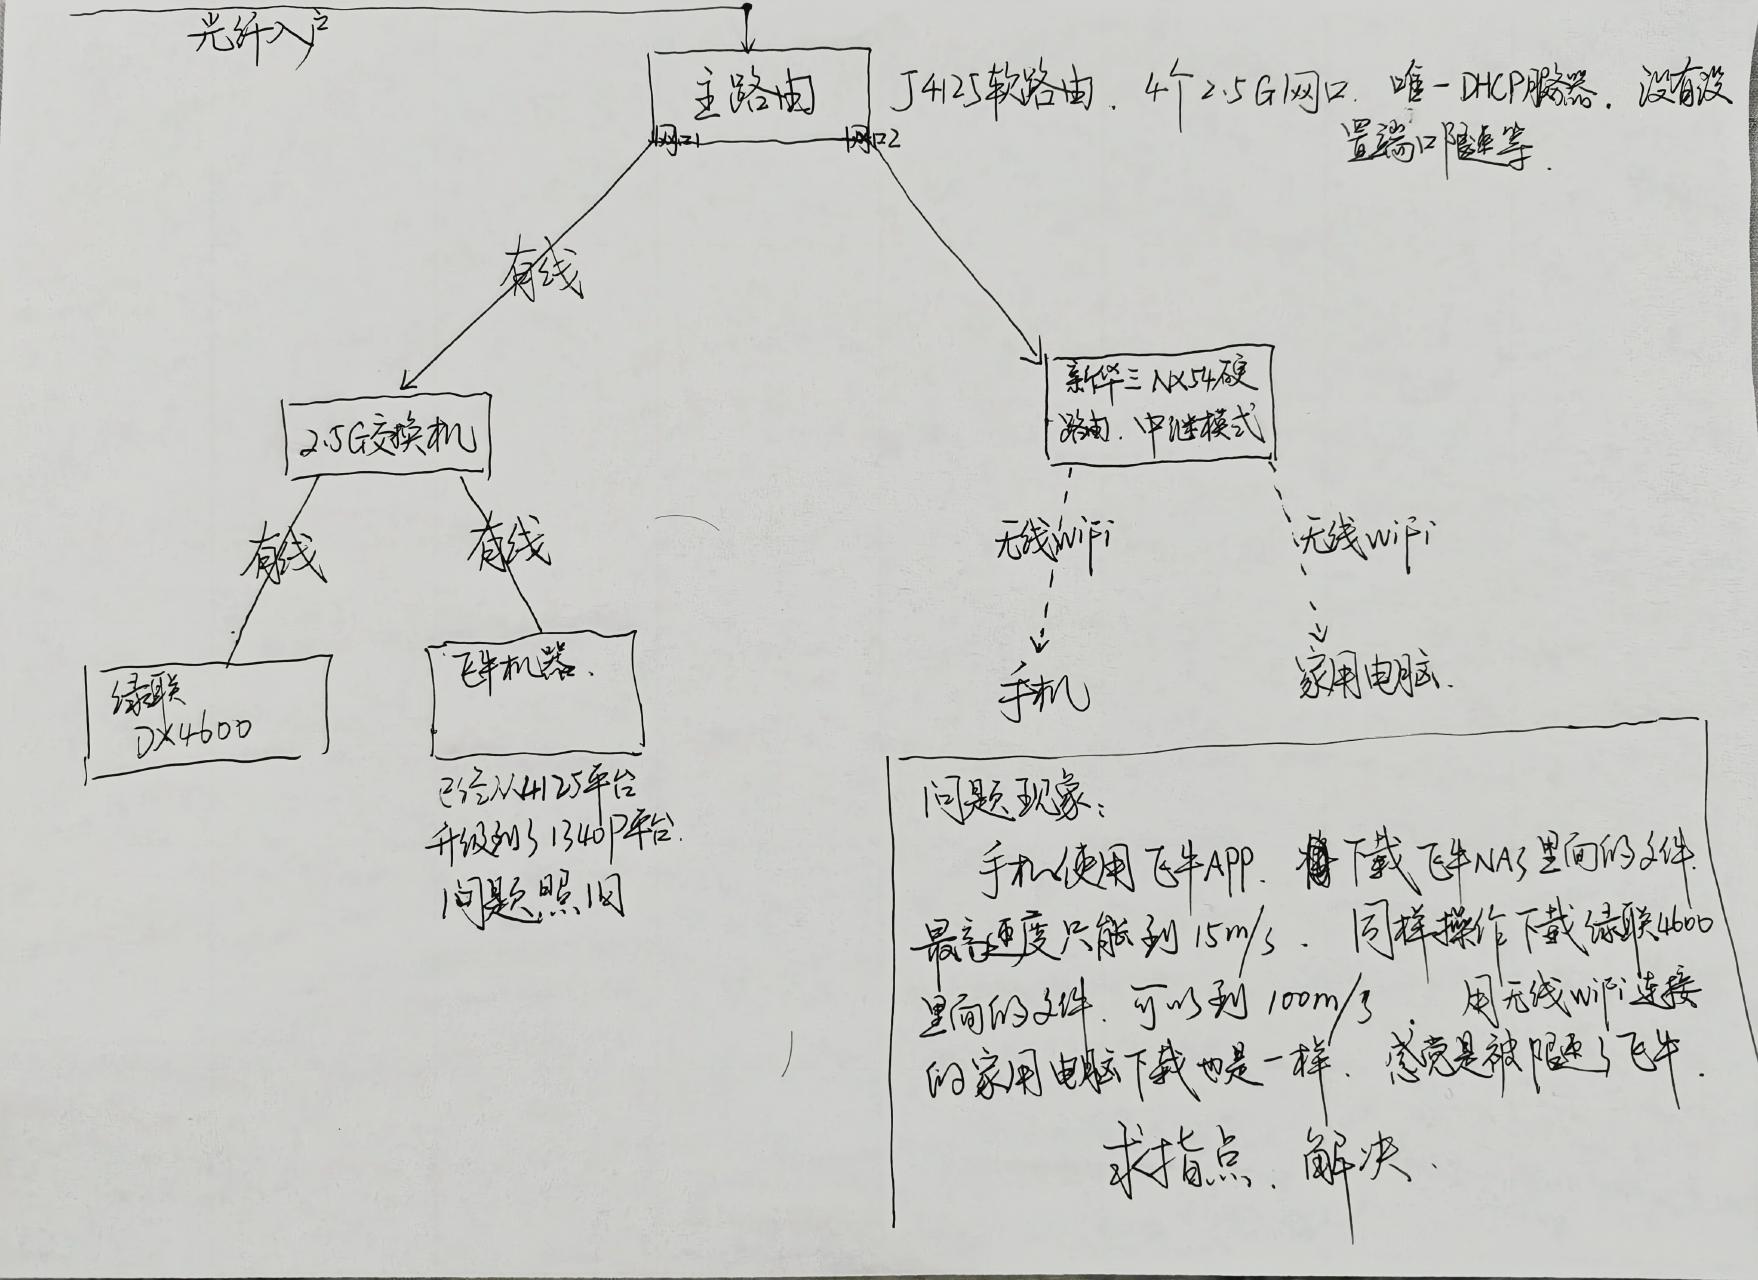 光纤入户
主路由
网口1
网口2
J4125软路由. 4个2.5G网口. 唯一DHCP服务器. 没有设
置端口限速等.
有线
2.5G交换机
新华三NX54硬
路由. 中继模式
有线
有线
无线WiFi
无线WiFi
绿联
DX4600
飞牛机器.
手机
家用电脑.
已经从4125平台
升级到了1340P平台.
问题照旧
问题现象:
手机使用飞牛APP. 下载飞牛NAS里面的文件.
最高速度只能到15m/s. 同样操作下载绿联4600
里面的文件. 可以到100m/s. 用无线WiFi连接
的家用电脑下载也是一样. 感觉是被限速了飞牛.
求指点、解决.